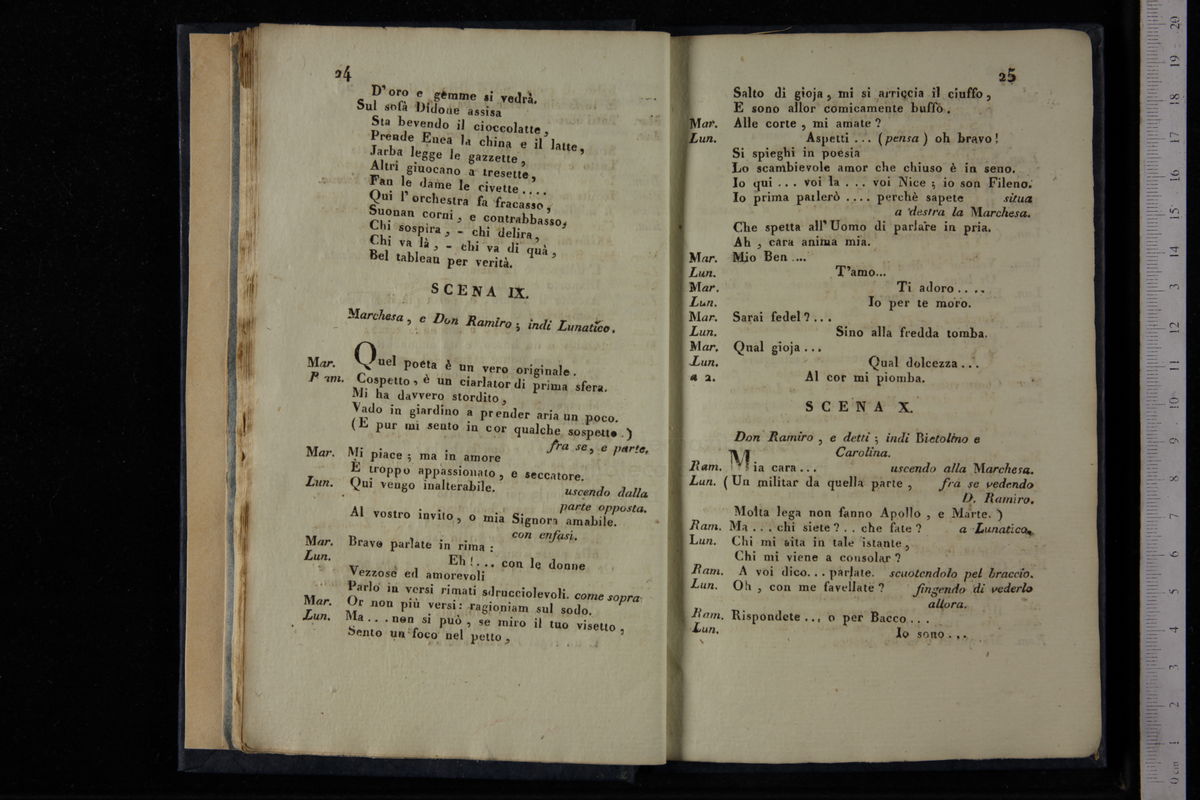 24
D'oro e gemme si vedrà.
Sul sofà Didone assisa
Sta bevendo il cioccolatte,
Prende Enea la china e il latte,
Jarba legge le gazzette,
Altri giuocano a tresette,
Fan le dame le civette....
Qui l'orchestra fa fracasso,
Suonan corni, e contrabbasso,
Chi sospira, - chi delira,
Chi va là, - chi va di quà,
Bel tableau per verità.
SCENA IX.
Marchesa, e Don Ramiro; indi Lunatico.
Mar. Quel poeta è un vero originale.
Ram. Cospetto, è un ciarlator di prima sfera.
Mi ha davvero stordito,
Vado in giardino a prender aria un poco.
(E pur mi sento in cor qualche sospetto.)
fra se, e parte.
Mar. Mi piace; ma in amore
E troppo appassionato, e seccatore.
Lun. Qui vengo inalterabile. uscendo dalla
parte opposta.
Al vostro invito, o mia Signora amabile.
con enfasi.
Mar. Bravo parlate in rima:
Lun. Eh!... con le donne
Vezzose ed amorevoli
Parlo in versi rimati sdrucciolevoli. come sopra
Mar. Or non più versi: ragioniam sul sodo.
Lun. Ma...non si può, se miro il tuo visetto,
Sento un foco nel petto,
25
Salto di gioja, mi si arriccia il ciuffo,
E sono allor comicamente buffo.
Mar. Alle corte, mi amate?
Lun. Aspetti... (pensa) oh bravo!
Si spieghi in poesia
Lo scambievole amor che chiuso è in seno.
Io qui... voi la... voi Nice; io son Fileno.
Io prima parlerò.... perchè sapete situa
a destra la Marchesa.
Che spetta all'Uomo di parlare in pria.
Ah, cara anima mia.
Mar. Mio Ben....
Lun. T'amo...
Mar. Ti adoro....
Lun. Io per te moro.
Mar. Sarai fedel?...
Lun. Sino alla fredda tomba.
Mar. Qual gioja...
Lun. Qual dolcezza...
a 2. Al cor mi piomba.
SCENA X.
Don Ramiro, e detti; indi Bietolino e
Carolina.
Ram. Mia cara... uscendo alla Marchesa.
Lun. (Un militar da quella parte, fra se vedendo
D. Ramiro.
Molta lega non fanno Apollo, e Marte.)
Ram. Ma... chi siete?.. che fate? a Lunatico.
Lun. Chi mi aita in tale istante,
Chi mi viene a consolar?
Ram. A voi dico... parlate. scuotendolo pel braccio.
Lun. Oh, con me favellate? fingendo di vederlo
allora.
Ram. Rispondete... o per Bacco...
Lun. Io sono...